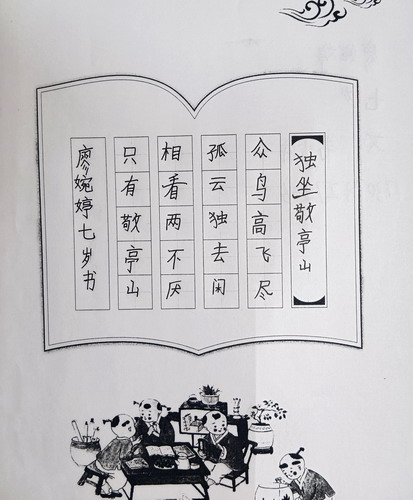 独坐敬亭山
众鸟高飞尽
孤云独去闲
相看两不厌
只有敬亭山
廖婉婷七岁书